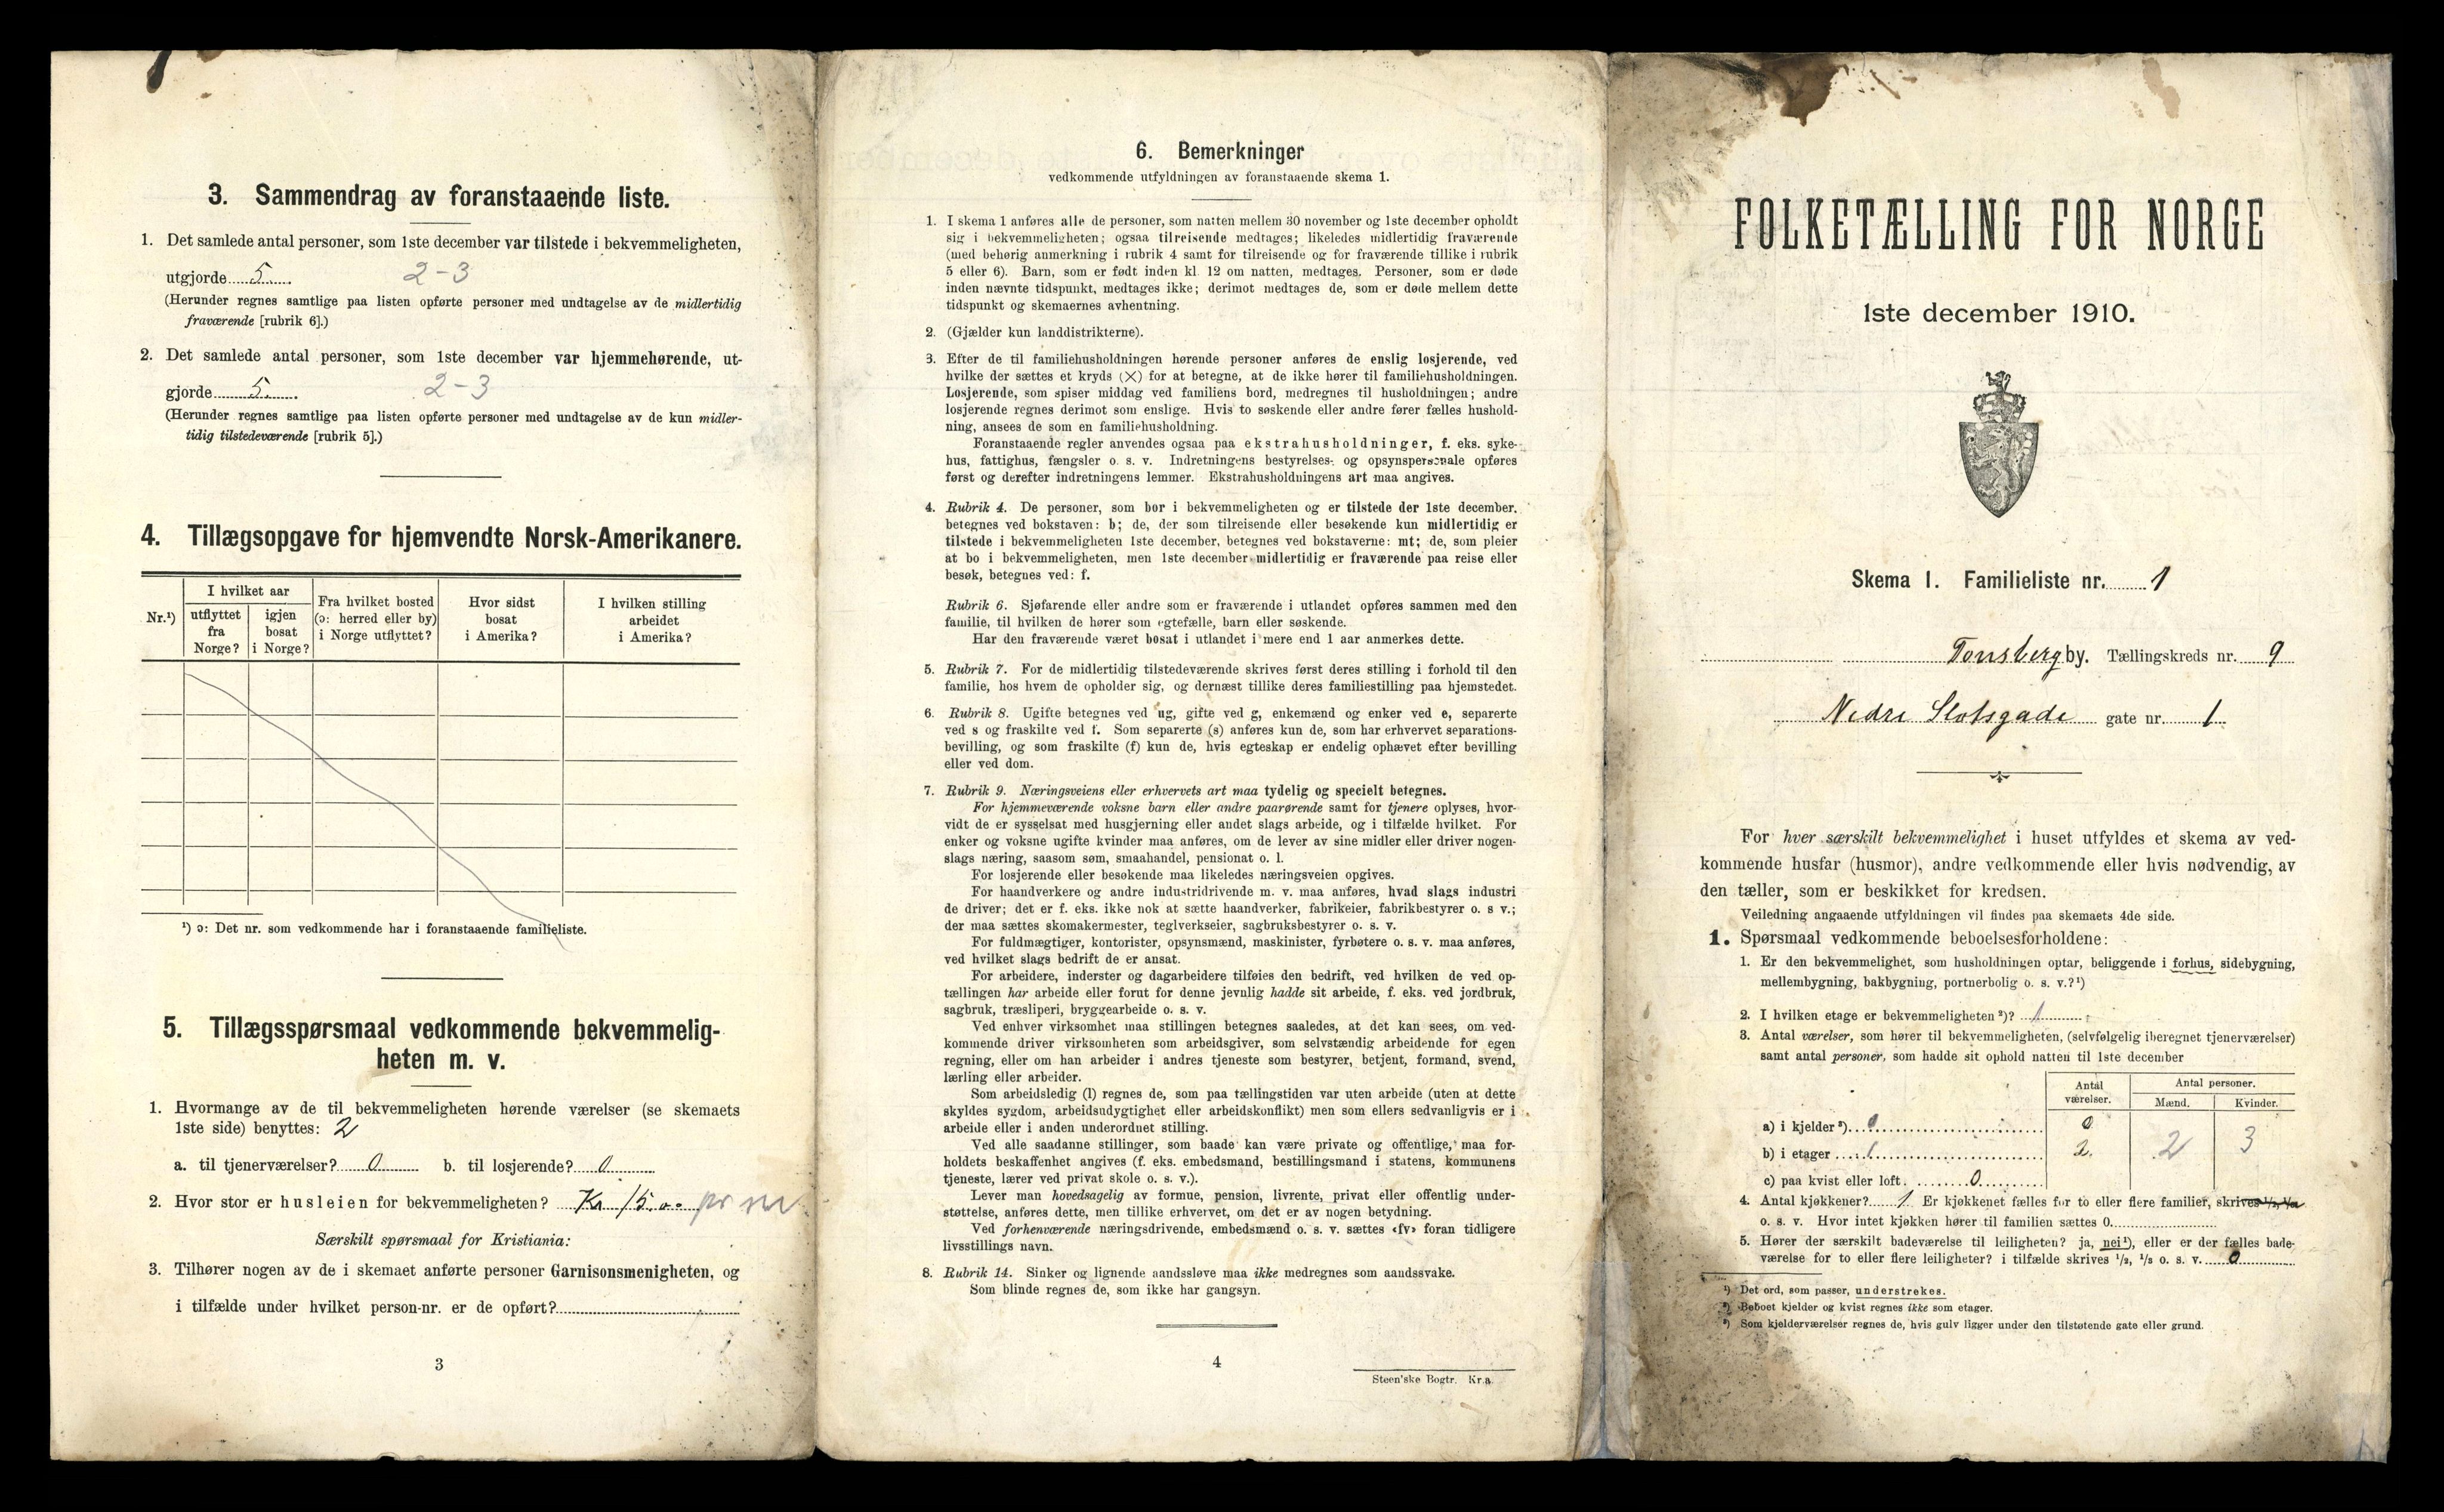 3. Sammendrag av foranstaaende liste.
1. Det samlede antal personer, som 1ste december var tilstede i bekvemmeligheten,
utgjorde 5. 2-3
(Herunder regnes samtlige paa listen opførte personer med undtagelse av de midlertidig
fraværende [rubrik 6].)
2. Det samlede antal personer, som 1ste december var hjemmehørende, ut-
gjorde 5. 2-3
(Herunder regnes samtlige paa listen opførte personer med undtagelse av de kun midler-
tidig tilstedeværende [rubrik 5].)
4. Tillægsopgave for hjemvendte Norsk-Amerikanere.
Nr.¹)
I hvilket aar
utflyttet
fra
Norge?
igjen
bosat
i Norge?
Fra hvilket bosted
(ɔ: herred eller by)
i Norge utflyttet?
Hvor sidst
bosat
i Amerika?
I hvilken stilling
arbeidet
i Amerika?
¹) ɔ: Det nr. som vedkommende har i foranstaaende familieliste.
5. Tillægsspørsmaal vedkommende bekvemmelig-
heten m. v.
1. Hvormange av de til bekvemmeligheten hørende værelser (se skemaets
1ste side) benyttes: 2
a. til tjenerværelser? 0 b. til losjerende? 0
2. Hvor stor er husleien for bekvemmeligheten? Kr 15.00 pr
Særskilt spørsmaal for Kristiania:
3. Tilhører nogen av de i skemaet anførte personer Garnisonsmenigheten, og
i tilfælde under hvilket person-nr. er de opført?
3
6. Bemerkninger
vedkommende utfyldningen av foranstaaende skema 1.
1. I skema 1 anføres alle de personer, som natten mellem 30 november og 1ste december opholdt
sig i bekvemmeligheten; ogsaa tilreisende medtages; likeledes midlertidig fraværende
(med behørig anmerkning i rubrik 4 samt for tilreisende og for fraværende tillike i rubrik
5 eller 6). Barn, som er født inden kl. 12 om natten, medtages. Personer, som er døde
inden nævnte tidspunkt, medtages ikke; derimot medtages de, som er døde mellem dette
tidspunkt og skemaernes avhentning.
2. (Gjælder kun landdistrikterne).
3. Efter de til familiehusholdningen hørende personer anføres de enslig losjerende, ved
hvilke der sættes et kryds (×) for at betegne, at de ikke hører til familiehusholdningen.
Losjerende, som spiser middag ved familiens bord, medregnes til husholdningen; andre
losjerende regnes derimot som enslige. Hvis to søskende eller andre fører fælles hushold-
ning, ansees de som en familiehusholdning.
Foranstaaende regler anvendes ogsaa paa ekstrahusholdninger, f. eks. syke-
hus, fattighus, fængsler o. s. v. Indretningens bestyrelses- og opsynspersonale opføres
først og derefter indretningens lemmer. Ekstrahusholdningens art maa angives.
4. Rubrik 4. De personer, som bor i bekvemmeligheten og er tilstede der 1ste december,
betegnes ved bokstaven: b; de, der som tilreisende eller besøkende kun midlertidig er
tilstede i bekvemmeligheten 1ste december, betegnes ved bokstaverne: mt; de, som pleier
at bo i bekvemmeligheten, men 1ste december midlertidig er fraværende paa reise eller
besøk, betegnes ved: f.
Rubrik 6. Sjøfarende eller andre som er fraværende i utlandet opføres sammen med den
familie, til hvilken de hører som egtefælle, barn eller søskende.
Har den fraværende været bosat i utlandet i mere end 1 aar anmerkes dette.
5. Rubrik 7. For de midlertidig tilstedeværende skrives først deres stilling i forhold til den
familie, hos hvem de opholder sig, og dernæst tillike deres familiestilling paa hjemstedet.
6. Rubrik 8. Ugifte betegnes ved ug, gifte ved g, enkemænd og enker ved e, separerte
ved s og fraskilte ved f. Som separerte (s) anføres kun de, som har erhvervet separations-
bevilling, og som fraskilte (f) kun de, hvis egteskap er endelig ophævet efter bevilling
eller ved dom.
7. Rubrik 9. Næringsveiens eller erhvervets art maa tydelig og specielt betegnes.
For hjemmeværende voksne barn eller andre paarørende samt for tjenere oplyses, hvor-
vidt de er sysselsat med husgjerning eller andet slags arbeide, og i tilfælde hvilket. For
enker og voksne ugifte kvinder maa anføres, om de lever av sine midler eller driver nogen-
slags næring, saasom søm, smaahandel, pensionat o. l.
For losjerende eller besøkende maa likeledes næringsveien opgives.
For haandverkere og andre industridrivende m. v. maa anføres, hvad slags industri
de driver; det er f. eks. ikke nok at sætte haandverker, fabrikeier, fabrikbestyrer o. s v.;
der maa sættes skomakermester, teglverkseier, sagbruksbestyrer o. s. v.
For fuldmægtiger, kontorister, opsynsmænd, maskinister, fyrbøtere o. s. v. maa anføres,
ved hvilket slags bedrift de er ansat.
For arbeidere, inderster og dagarbeidere tilføies den bedrift, ved hvilken de ved op-
tællingen har arbeide eller forut for denne jevnlig hadde sit arbeide, f. eks. ved jordbruk,
sagbruk, træsliperi, bryggearbeide o. s. v.
Ved enhver virksomhet maa stillingen betegnes saaledes, at det kan sees, om ved-
kommende driver virksomheten som arbeidsgiver, som selvstændig arbeidende for egen
regning, eller om han arbeider i andres tjeneste som bestyrer, betjent, formand, svend,
lærling eller arbeider.
Som arbeidsledig (l) regnes de, som paa tællingstiden var uten arbeide (uten at dette
skyldes sygdom, arbeidsudygtighet eller arbeidskonflikt) men som ellers sedvanligvis er i
arbeide eller i anden underordnet stilling.
Ved alle saadanne stillinger, som baade kan være private og offentlige, maa for-
holdets beskaffenhet angives (f. eks. embedsmand, bestillingsmand i statens, kommunens
tjeneste, lærer ved privat skole o. s. v.).
Lever man hovedsagelig av formue, pension, livrente, privat eller offentlig under-
støttelse, anføres dette, men tillike erhvervet, om det er av nogen betydning.
Ved forhenværende næringsdrivende, embedsmænd o. s. v. sættes «fv» foran tidligere
livsstillings navn.
8. Rubrik 14. Sinker og lignende aandssløve maa ikke medregnes som aandssvake.
Som blinde regnes de, som ikke har gangsyn.
4
Steen'ske Bogtr. Kr.a.
FOLKETÆLLING FOR NORGE
1ste december 1910.
Skema 1. Familieliste nr. 1
Tønsberg by. Tællingskreds nr. 9
Nedre Slotsgade gate nr. 1
For hver særskilt bekvemmelighet i huset utfyldes et skema av ved-
kommende husfar (husmor), andre vedkommende eller hvis nødvendig, av
den tæller, som er beskikket for kredsen.
Veiledning angaaende utfyldningen vil findes paa skemaets 4de side.
1. Spørsmaal vedkommende beboelsesforholdene:
1. Er den bekvemmelighet, som husholdningen optar, beliggende i forhus, sidebygning,
mellembygning, bakbygning, portnerbolig o. s. v.?¹)
2. I hvilken etage er bekvemmeligheten²)? 1
3. Antal værelser, som hører til bekvemmeligheten, (selvfølgelig iberegnet tjenerværelser)
samt antal personer, som hadde sit ophold natten til 1ste december
Antal
værelser.
Antal personer.
Mænd. Kvinder.
a) i kjelder³) 0 0
b) i etager 1 2. 2 3
c) paa kvist eller loft. 0
4. Antal kjøkkener? 1. Er kjøkkenet fælles for to eller flere familier, skrives ¹/₂, ¹/₃
o. s. v. Hvor intet kjøkken hører til familien sættes 0.
5. Hører der særskilt badeværelse til leiligheten? ja, nei¹), eller er der fælles bade-
værelse for to eller flere leiligheter? i tilfælde skrives ¹/₂, ¹/₃ o. s. v. 0
¹) Det ord, som passer, understrekes.
²) Beboet kjelder og kvist regnes ikke som etager.
³) Som kjelderværelser regnes de, hvis gulv ligger under den tilstøtende gate eller grund.